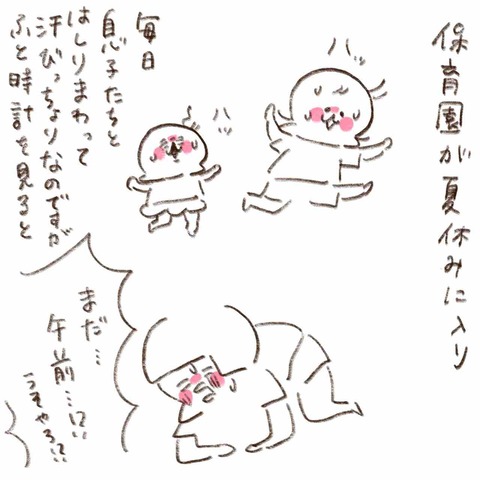 保育園が夏休みに入り
ハッ
ハッ
毎日
息子たちと
はしりまわって
汗びっちょりなのですが
ふと時計を見ると
まだ…
午前…!?
うそやろ!?